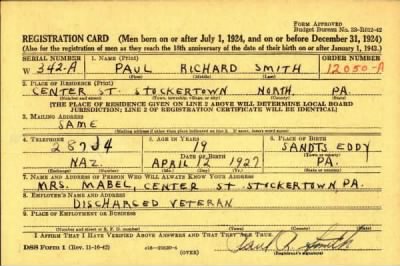 FORM APPROVED
Budget Bureau No. 33-R012-42
REGISTRATION CARD (Men born on or after July 1, 1924, and on or before December 31, 1924)
(Also for the registration of men as they reach the 18th anniversary of the date of their birth on or after January 1, 1943.)
SERIAL NUMBER 1. NAME (Print) ORDER NUMBER
W 342-A PAUL RICHARD SMITH 12050-A
(First) (Middle) (Last)
2. PLACE OF RESIDENCE (Print)
CENTER ST. STOCKERTOWN NORTH. PA.
(Number and street) (Town, township, village, or city) (County) (State)
[THE PLACE OF RESIDENCE GIVEN ON LINE 2 ABOVE WILL DETERMINE LOCAL BOARD
JURISDICTION; LINE 2 OF REGISTRATION CERTIFICATE WILL BE IDENTICAL]
3. MAILING ADDRESS
SAME
[Mailing address if other than place indicated on line 2. If same, insert word same]
4. TELEPHONE 5. AGE IN YEARS 6. PLACE OF BIRTH
19 SANDTS EDDY
DATE OF BIRTH (Town or county)
NAZ. APRIL 12 1927 PA.
(Exchange) (Number) (Mo.) (Day) (Yr.) (State or country)
7. NAME AND ADDRESS OF PERSON WHO WILL ALWAYS KNOW YOUR ADDRESS
MRS. MABEL, CENTER ST STOCKERTOWN PA.
8. EMPLOYER'S NAME AND ADDRESS
DISCHARGED VETERAN
9. PLACE OF EMPLOYMENT OR BUSINESS
(Number and street or R. F. D. number) (Town) (County) (State)
I AFFIRM THAT I HAVE VERIFIED ABOVE ANSWERS AND THAT THEY ARE TRUE.
DSS Form 1 (Rev. 11-16-42) (OVER) Paul R. Smith
(Registrant's signature)